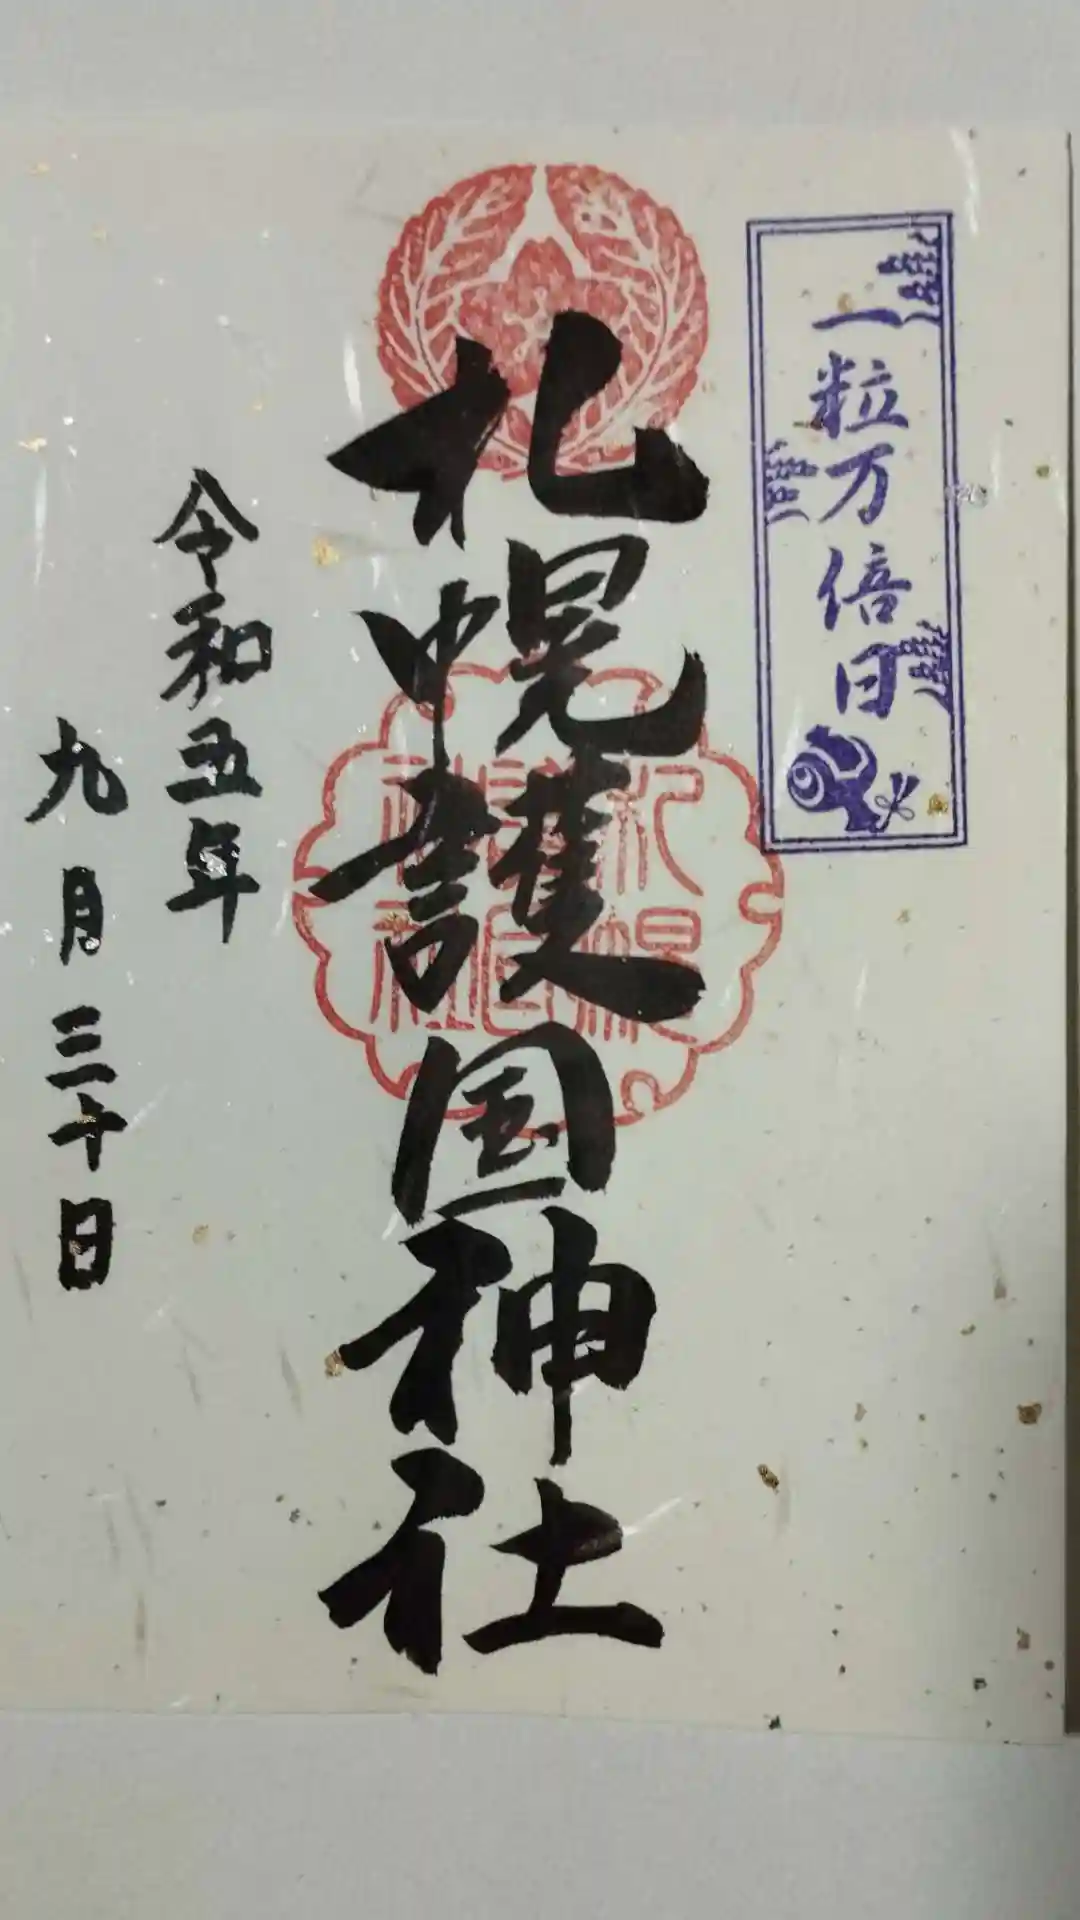 一粒万倍日
札幌護国神社
札幌
護国
神社
令和五年
九月三十日